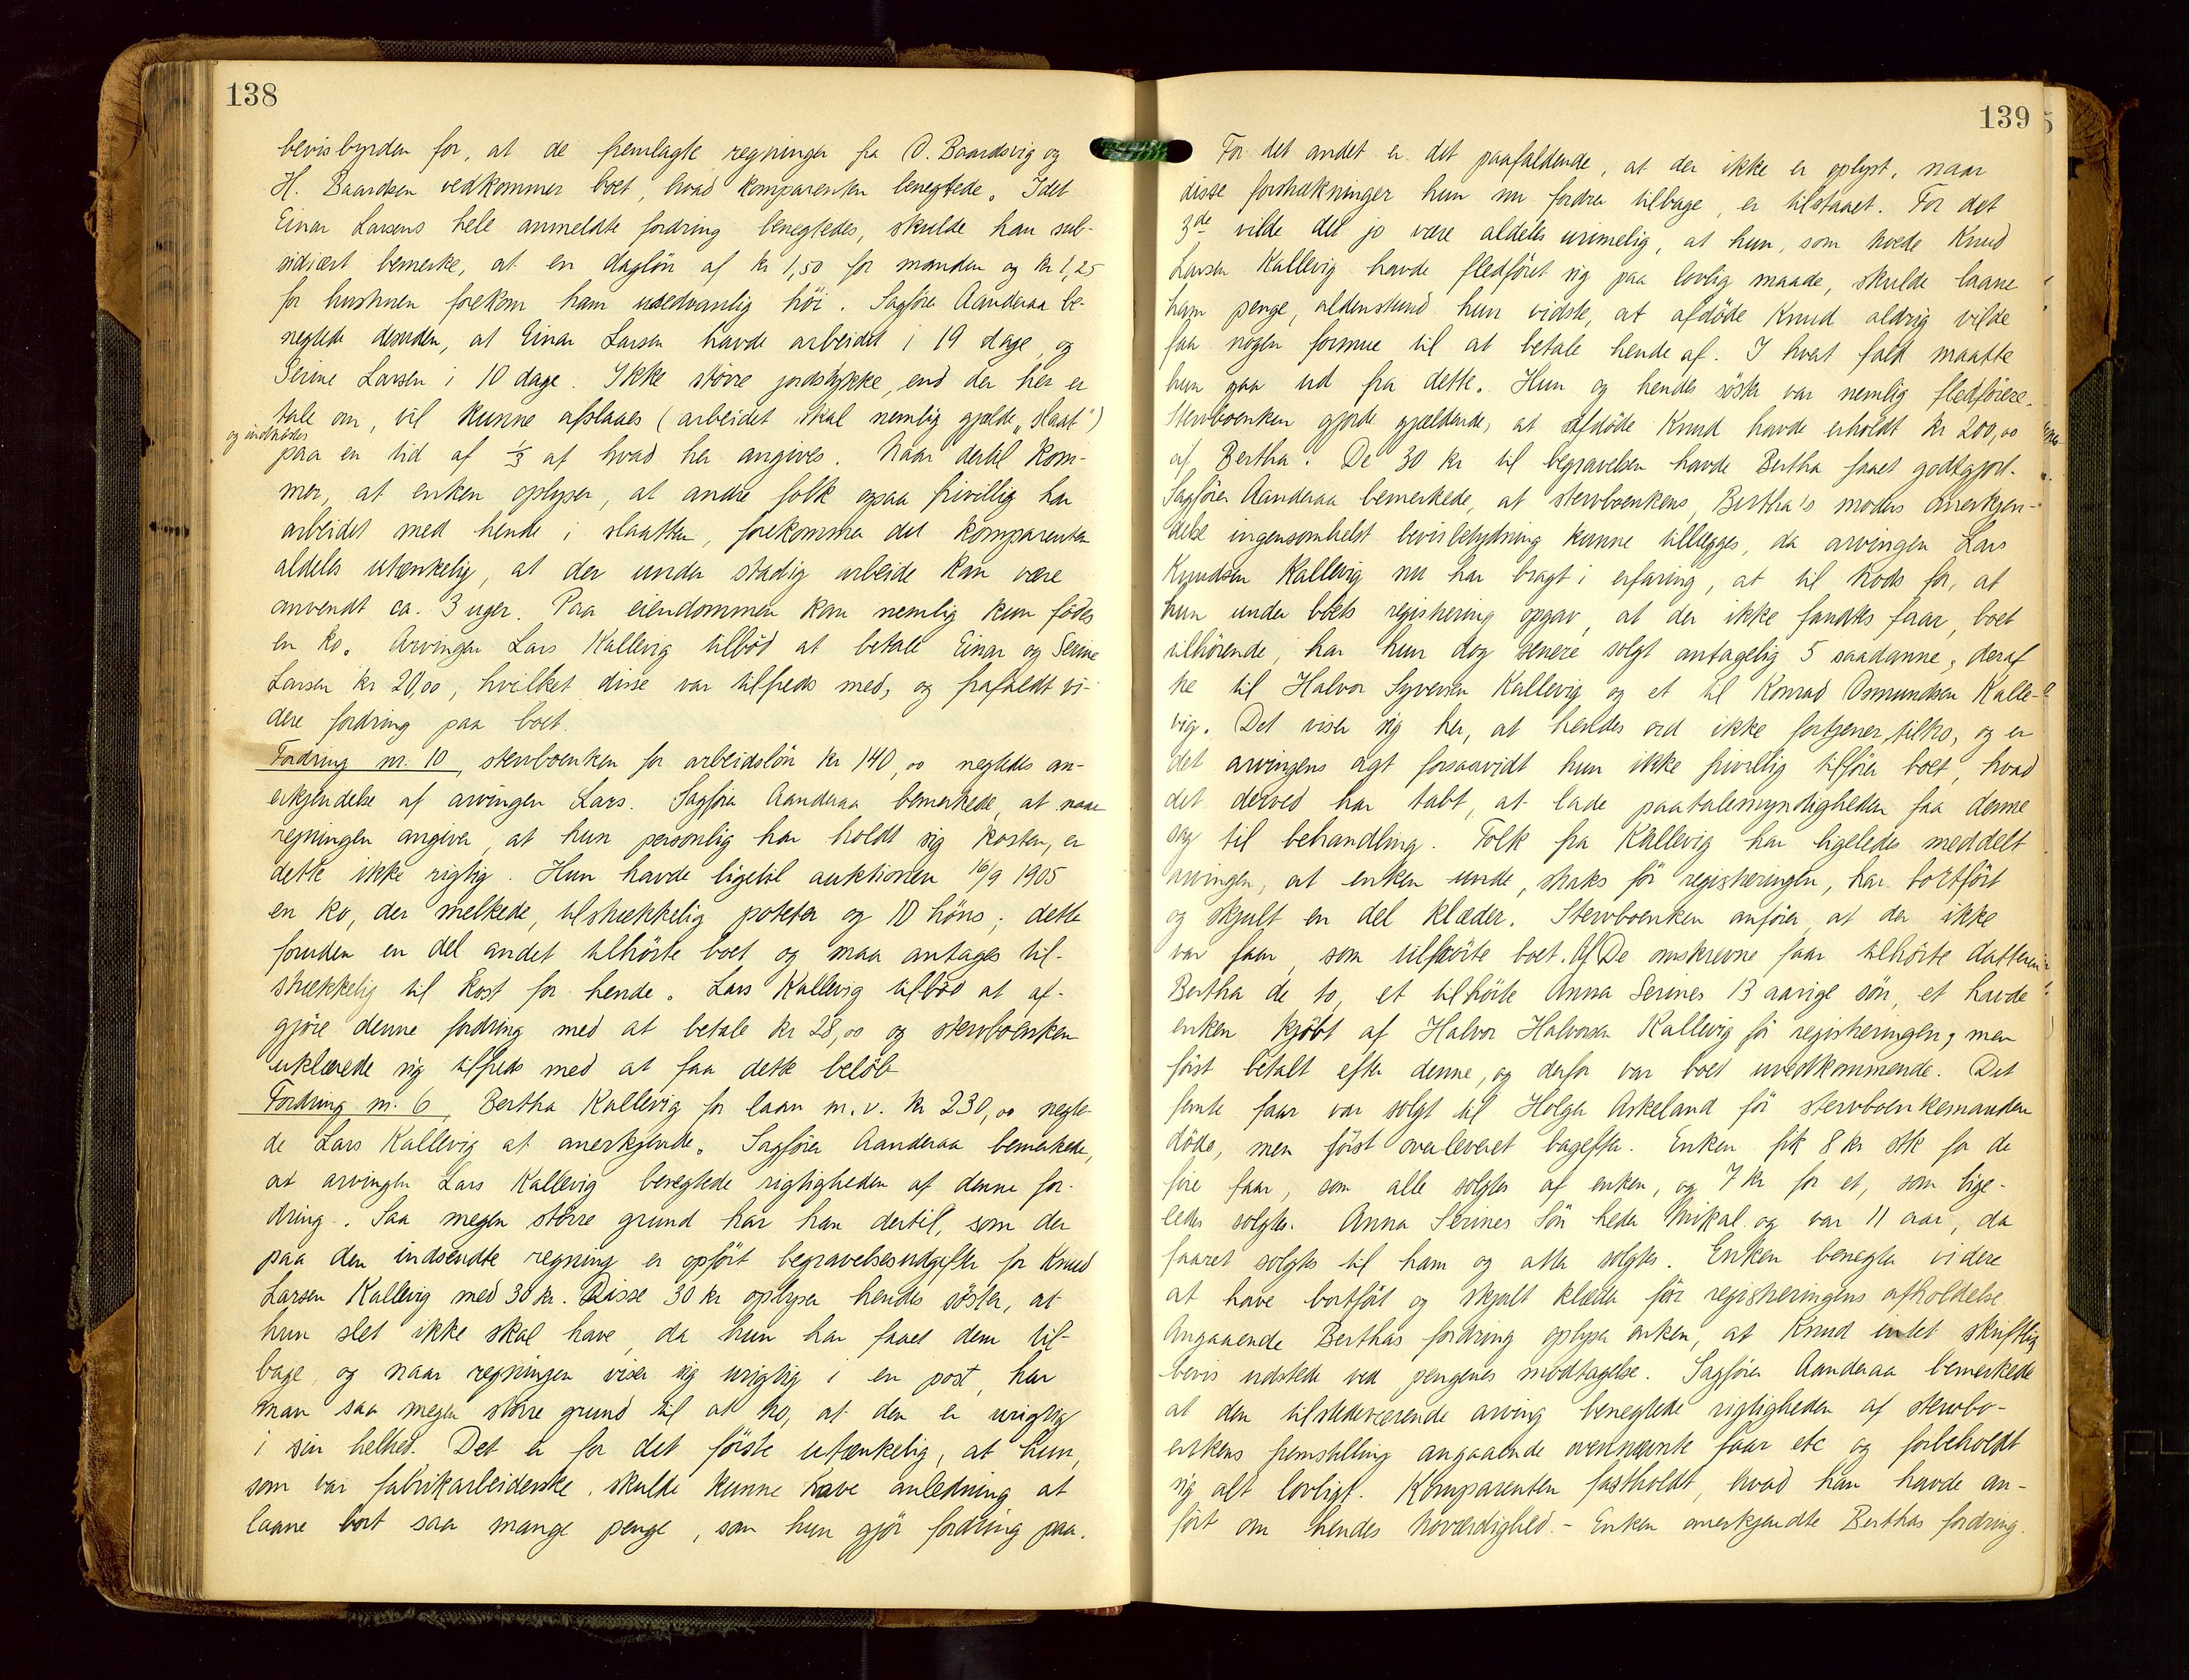 138
bevisbyrden for, at de fremlagte regninger fra O. Baardsvig og
H. Baardsen vedkommer boet, hvad komparenten benegtede. Idet
Einar Larsens hele anmeldte fordring benegtedes, skulde han sub-
sidiært bemerke, at en daglön af kr 1,50 for manden og kr 1,25
for hustruen forekom ham usedvanlig höi. Sagförer Aanderaa be-
negtede desuden, at Einar Larsen havde arbeidet i 19 dage, og
Serine Larsen i 10 dage. Ikke större jordstykke, end der her er
tale om, vil kunne afslaaes (arbeidet skal nemlig gjælde "slaat")
og indhöstes
paa en tid af 1/3 af hvad her angives. Naar dertil kom-
mer, at enken oplyser, at andre folk ogsaa frivillig har
arbeidet med hende i slaatten, forekommer det komparenten
aldeles utænkelig, at der under stadig arbeide kan være
anvendt ca. 3 uger. Paa eiendommen kan nemlig kun födes
en ko. Arvingen Lars Kallevig tilböd at betale Einar og Serine
Larsen kr 20,00, hvilket disse var tilfreds med, og frafaldt vi-
dere fordring paa boet.
Fordring nr. 10, stervboenken for arbeidslön kr 140,00 negtedes an-
erkjendelse af arvingen Lars. Sagförer Aanderaa bemerkede, at naar
regningen angiver, at hun personlig har holdt sig kosten, er
dette ikke rigtig. Hun havde ligetil auktionen 16/9 1905
en ko, der melkede, tilstrækkelig poteter og 10 höns; dette
foruden en del andet tilhörte boet og maa antages til-
strækkelig til kost for hende. Lars Kallevig tilböd at af-
gjöre denne fordring med at betale kr 28,00 og stervboenken
erklærede sig tilfreds med at faa dette belöb
Fordring nr. 6, Bertha Kallevig for laan m.v. kr 230,00 negte-
de Lars Kallevig at anerkjende. Sagförer Aanderaa bemerkede,
at arvingen Lars Kallevig benegtede rigtigheden af denne for-
dring. Saa megen större grund har han dertil, som der
paa den indsendte regning er opfört begravelsesudgifter for Knud
Larsen Kallevig med 30 kr. Disse 30 kr oplyser hendes söster, at
hun slet ikke skal have, da hun har faaet dem til-
bage, og naar regningen viser sig urigtig i en post, har
man saa megen större grund til at tro, at den er urigtig
i sin helhed. Det er for det förste utænkelig, at hun,
som var fabrikarbeiderske, skulde kunne have anledning at
laane bort saa mange penge, som hun gjör fordring paa.
139
For det andet er det paafaldende, at der ikke er oplyst, naar
disse forstrækninger hun nu fordrer tilbage, er tilstaaet. For det
3de vilde det jo være aldeles urimelig, at hun, som hvede Knud
Larsen Kallevig havde fledföret sig paa lovlig maade, skulde laane
ham penge, aldenstund hun vidste, at afdöde Knud aldrig vilde
faa nogen formue til at betale hende af. I hvert fald maatte
hun gaa ud fra dette. Hun og hendes söster var nemlig fledförere.
Stervboenken gjorde gjældende, at afdöde Knud havde erholdt kr 200,00
af Bertha. De 30 kr til begravelsen havde Bertha faaet godtgjort.
Sagförer Aanderaa bemerkede, at stervboenkens, Bertha's moders anerkjen-
delse ingensomhelst bevisbetydning kunne tillægges, da arvingen Lars
Knudsen Kallevig nu har bragt i erfaring, at til trods for, at
hun under boets registrering opgav, at der ikke fandtes faar, boet
tilhörende, har hun dog senere solgt antagelig 5 saadanne, deraf
tre til Halvor Syversen Kallevig og et til Konrad Osmundsen Kalle-
vig. Det viser sig her, at hendes ord ikke fortjener tiltro, og er
det arvingens agt forsaavidt hun ikke frivillig tilförer boet, hvad
det derved har tabt, at lade paatalemyndigheden faa denne
sag til behandling. Folk fra Kallevig har ligeledes meddelt
arvingen, at enken unde, straks för registreringen, har bortfört
og skjult en del klæder. Stervboenken anförer, at der ikke
var faar, som tilhörte boet. Af De omskrevne faar tilhörte datteren
Bertha de to, et tilhörte Anna Serines 13 aarige sön, et havde
enken kjöbt af Halvor Halvorsen Kallevig för registreringen, men
först betalt efter denne, og derfor var boet uvedkommende. Det
femte faar var solgt til Holger Askeland för stervboenkemanden
döde, men först overleveret bagefter. Enken fik 8 kr stk for de
fire faar, som alle solgtes af enken, og 7 kr for et, som lige-
ledes solgtes. Anna Serines Sön heder Mikal og var 11 aar, da
faaret solgtes til ham og atter solgtes. Enken benegter videre
at have bortfört og skjult klæder för registreringens afholdelse.
Angaaende Berthas fordring oplyser enken, at Knud intet skriftlig
bevis udstedte ved pengenes modtagelse. Sagförer Aanderaa bemerkede
at den tilstedeværende arving benegtede rigtigheden af stervbo-
enkens fremstilling angaaende ovennævnte faar etc og forbeholdt
sig alt lovligt. Komparenten fastholdt, hvad han havde an-
fört om hendes troværdighed. - Enken anerkjendte Berthas fordring.